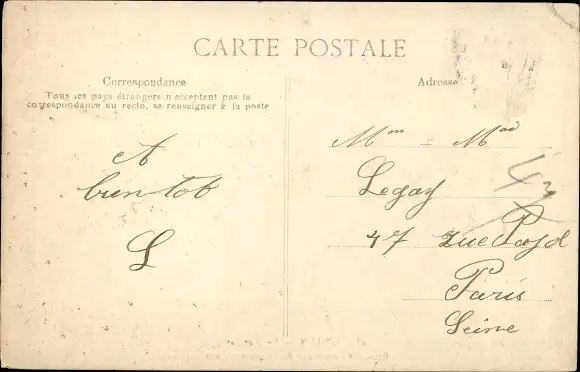 CARTE POSTALE
Correspondance
Tous les pays étrangers n'acceptent pas la
correspondance au recto, se renseigner à la poste
A
bientot
L
Adresse
Mon = Mad
Legay
47 rue
Paris
Seine